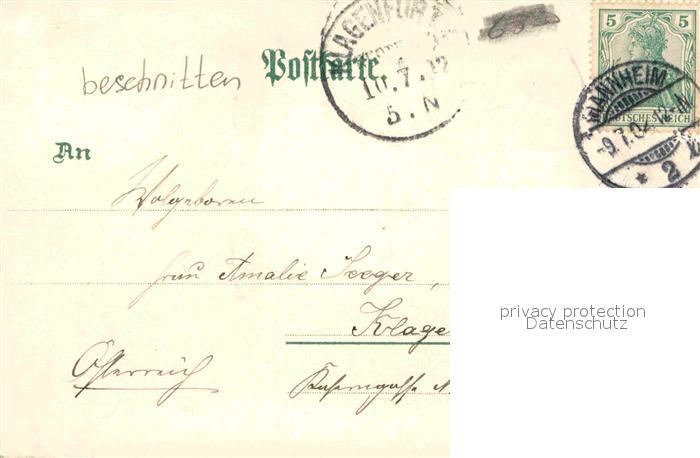 KLAGENFURT
10.7.02
5.N
5 5
DEUTSCHES REICH
MANNHEIM
-9.7.02
* 2
beschnitten
Postkarte.
An
Wolgeboren
Frau Amalie Seeger,
Klage
Österreich
privacy protection
Datenschutz